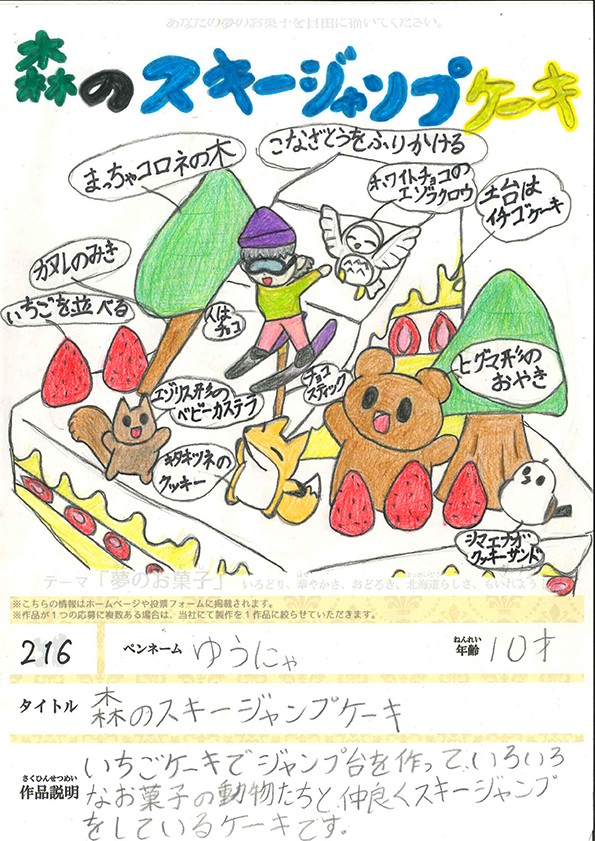 あなたの夢のお菓子を自由に描いてください。
森のスキージャンプケーキ
こなざとうをふりかける
まっちゃコロネの木
ホワイトチョコの
エゾフクロウ
土台は
イチゴケーキ
カヌレのみき
いちごを並べる
人は
チョコ
チョコ
スティック
ヒグマ形の
おやき
エゾリス形の
ベビーカステラ
キタキツネの
クッキー
シマエナガ
クッキーサンド
テーマ「夢のお菓子」 いろどり、華やかさ、おどろき、北海道らしさ、もいれよう!
※こちらの情報はホームページや投票フォームに掲載されます。
※作品が1つの応募に複数ある場合は、当社にて製作を1作品に絞らせていただきます。
216 ペンネーム ゆうにゃ ねんれい 年齢 10才
タイトル 森のスキージャンプケーキ
さくひんせつめい
作品説明 いちごケーキでジャンプ台を作って、いろいろ
なお菓子の動物たちと仲良くスキージャンプ
をしているケーキです。